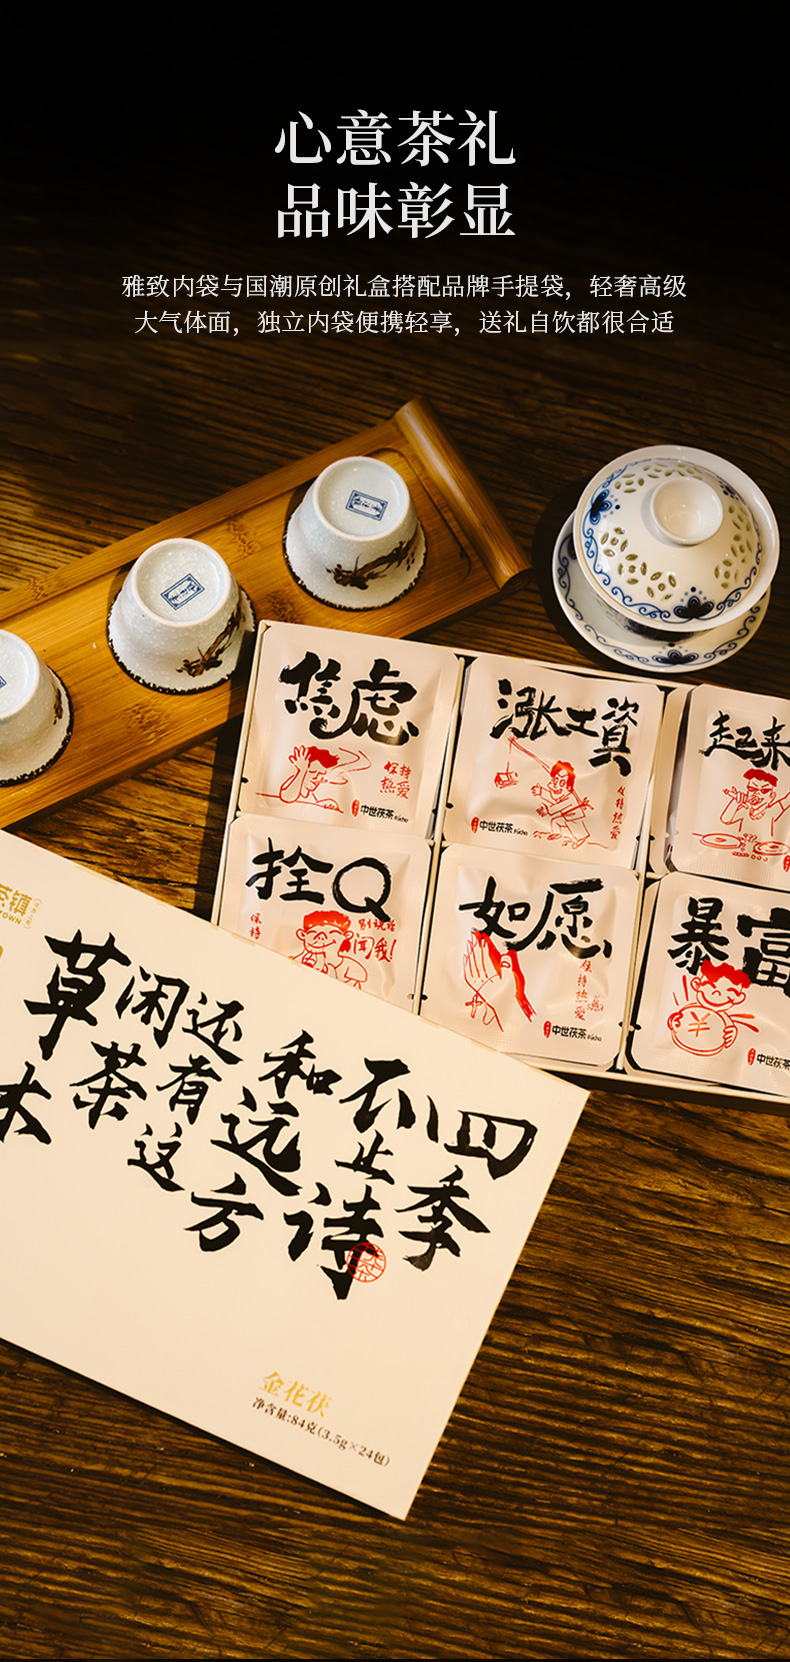 心意茶礼
品味彰显
雅致内袋与国潮原创礼盒搭配品牌手提袋，轻奢高级
大气体面，独立内袋便携轻享，送礼自饮都很合适
焦虑
保持
热爱
中世茯茶 Fucha
涨工資
保持热爱
中世茯茶 Fucha
起来
拴Q
保持
别说话
闻我!
如愿
保持热爱
中世茯茶 Fucha
暴富
中世茯茶
茶镇
TOWN
四季
不止诗
和远方
还有这
闲茶
草木
金花茯
净含量:84克(3.5g×24包)